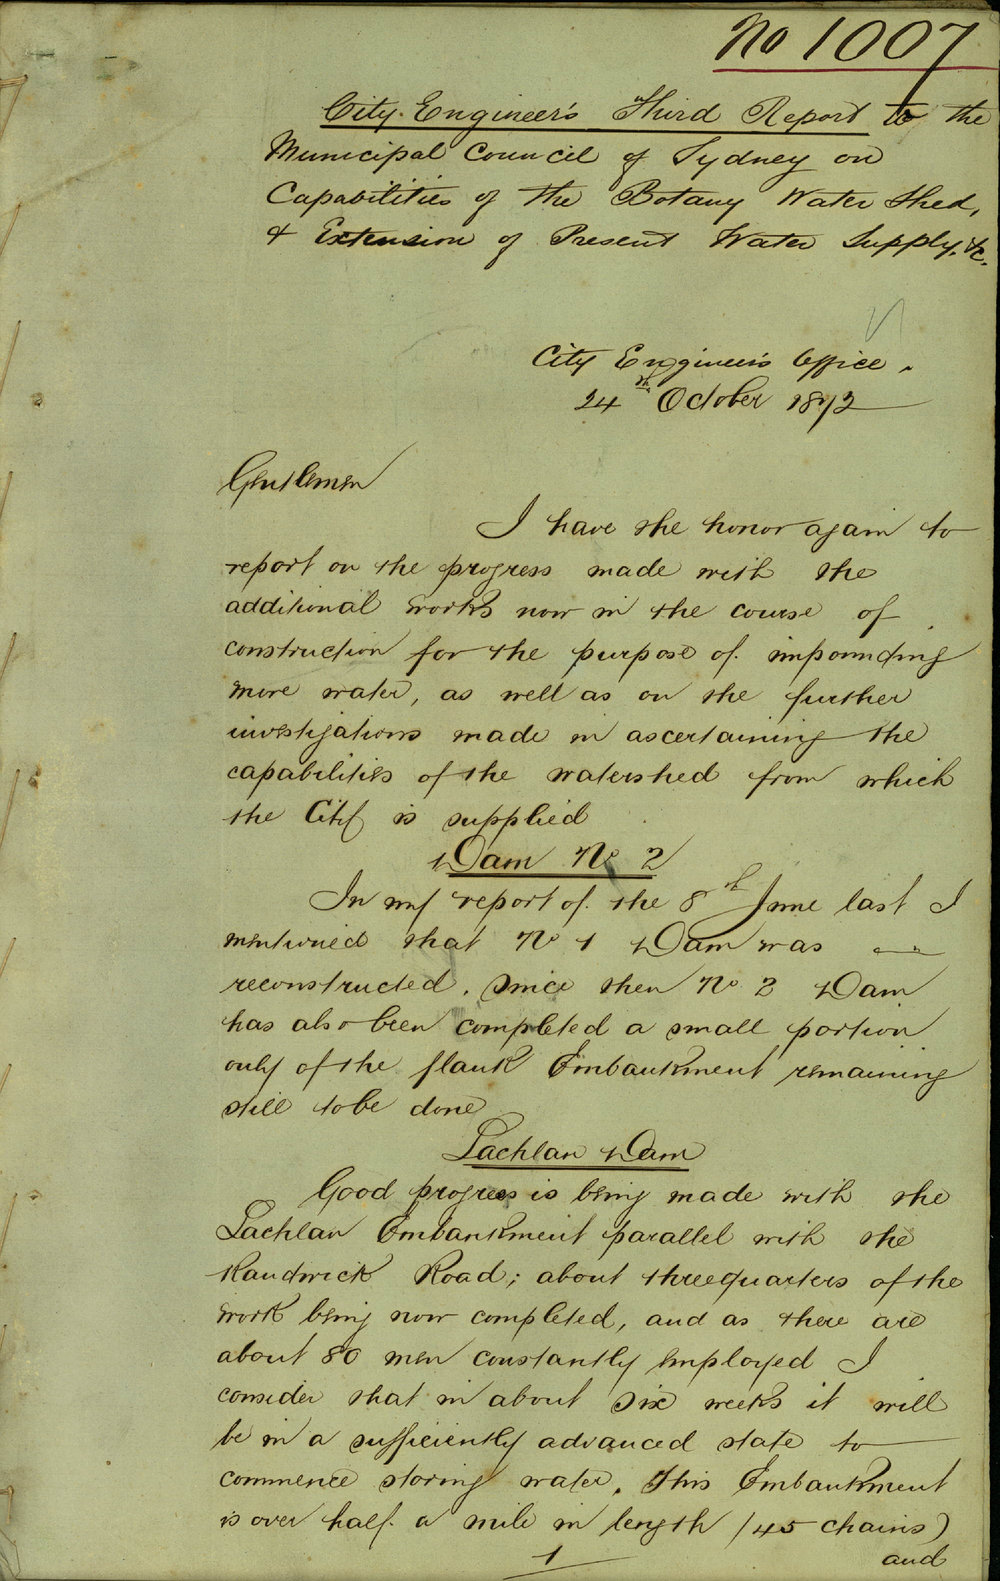 No 1007
City Engineer's Third Report to the
Municipal Council of Sydney on
Capabilities of the Botany Water Shed,
& Extension of Present Water Supply, &c.
City Engineer's Office.
24th October 1872
Gentlemen
I have the honor again to
report on the progress made with the
additional works now in the course of
construction for the purpose of impounding
more water, as well as on the further
investigations made in ascertaining the
capabilities of the watershed from which
the City is supplied
Dam No 2
In my report of the 8th June last I
mentioned that No 1 Dam was
reconstructed. Since then No 2 Dam
has also been completed a small portion
only of the flank Embankment remaining
still to be done
Lachlan Dam
Good progress is being made with the
Lachlan Embankment parallel with the
Randwick Road; about threequarters of the
work being now completed, and as there are
about 80 men constantly employed I
consider that in about six weeks it will
be in a sufficiently advanced state to
commence storing water. This Embankment
is over half a mile in length (45 chains)
1 and